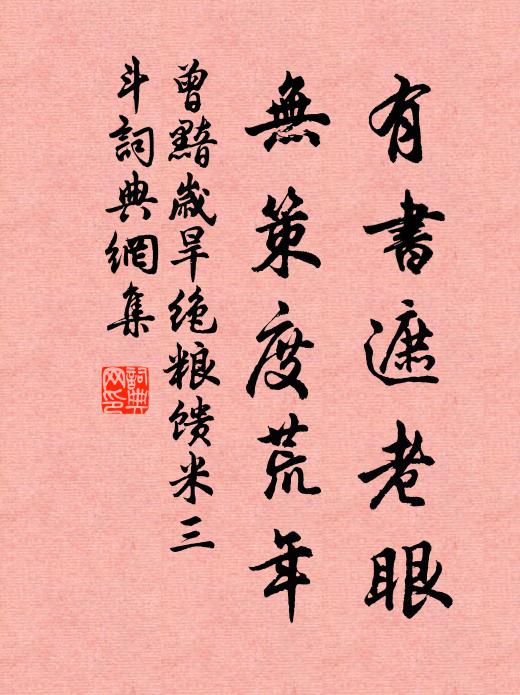 有書遮老眼
無策度荒年
曾黯歲旱绝粮馈米三
斗詞典網集
詞典
网印